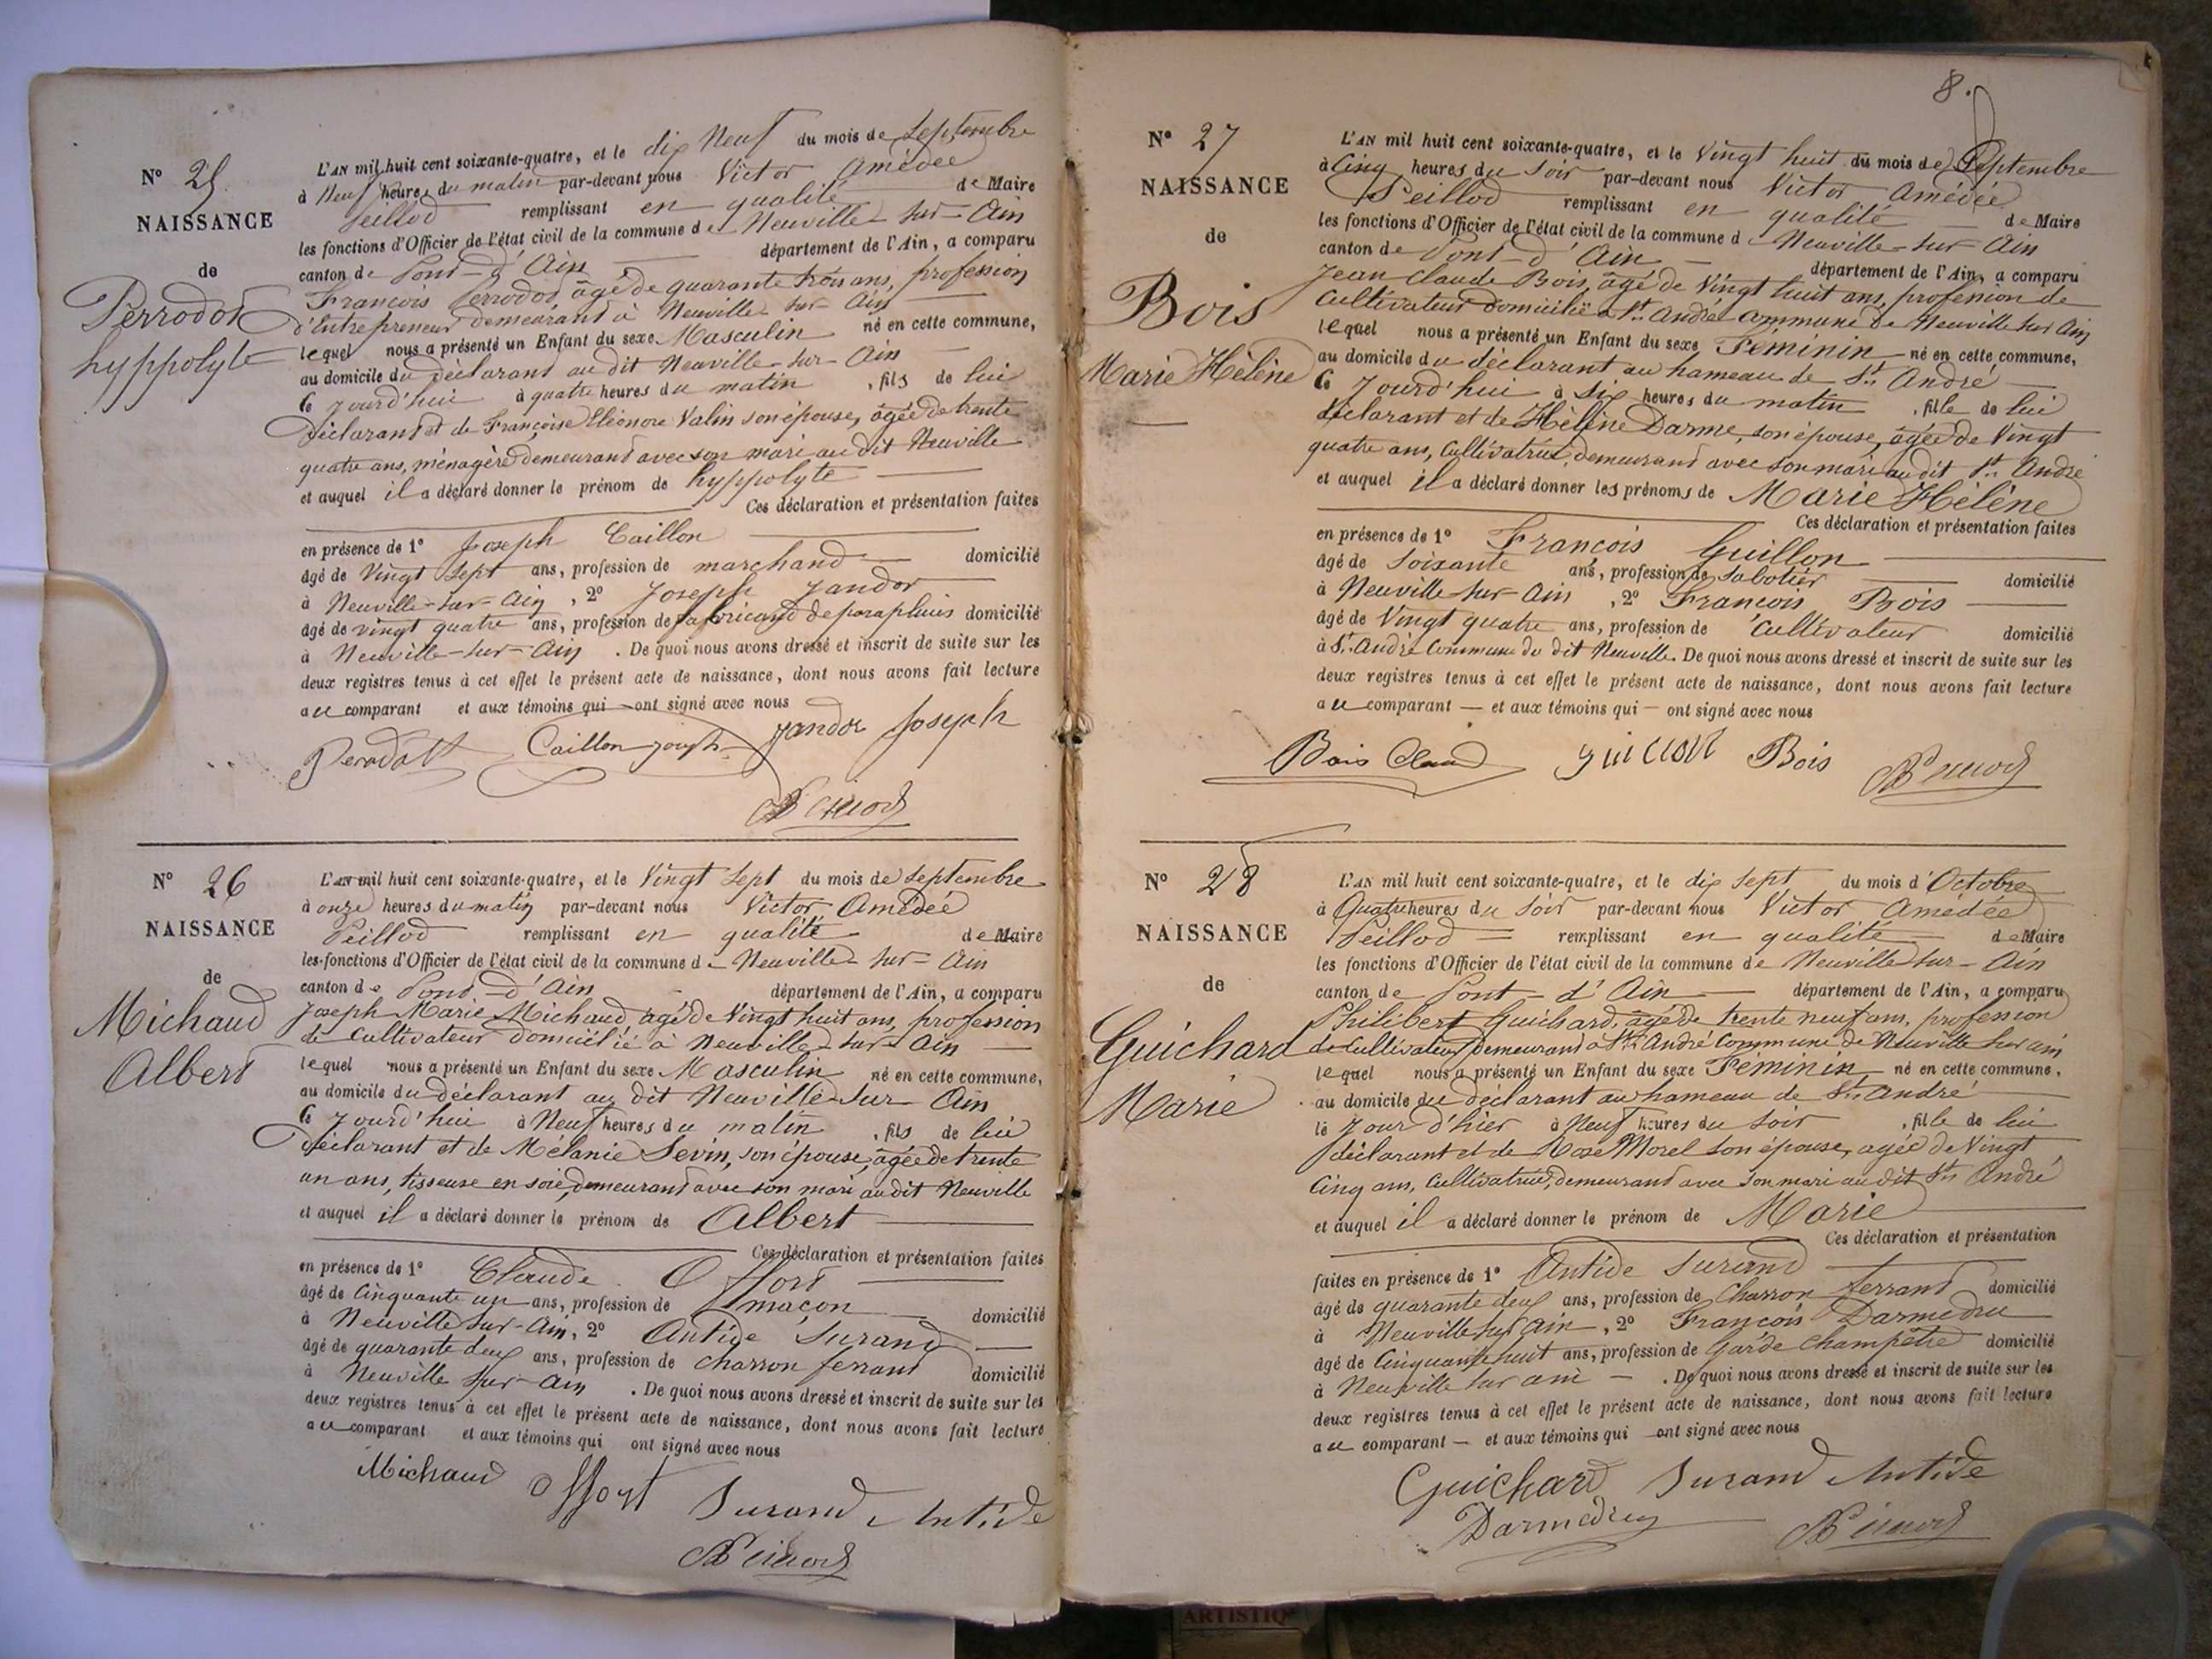 N° 25
NAISSANCE
de
Perrodot
hyppolyte
L'AN mil huit cent soixante-quatre, et le dix Neuf du mois de Septembre
à Neuf heures du matin par-devant nous Victor Amédée
Peillod remplissant en qualité de Maire
les fonctions d'Officier de l'état civil de la commune de Neuville-sur-Ain
canton de Pont-d'Ain département de l'Ain, a comparu
François Perrodot, âgé de quarante trois ans, profession
d'Entrepreneur demeurant à Neuville sur Ain
lequel nous a présenté un Enfant du sexe Masculin né en cette commune,
au domicile du déclarant au dit Neuville-sur-Ain
Ce jourd'hui à quatre heures du matin, fils de lui
déclarant et de Françoise Eléonore Valin son épouse, âgée de trente
quatre ans, ménagère demeurant avec son mari au dit Neuville
et auquel il a déclaré donner le prénom de hyppolyte
Ces déclaration et présentation faites
en présence de 1° Joseph Caillon
âgé de Vingt Sept ans, profession de marchand domicilié
à Neuville-sur-Ain, 2° Joseph Jandot
âgé de vingt quatre ans, profession de fabricant de parapluies domicilié
à Neuville-sur-Ain. De quoi nous avons dressé et inscrit de suite sur les
deux registres tenus à cet effet le présent acte de naissance, dont nous avons fait lecture
au comparant et aux témoins qui ont signé avec nous
Perodatt Caillon joseph Jandot Joseph
Peillod
N° 26
NAISSANCE
de
Michaud
Albert
L'AN mil huit cent soixante-quatre, et le Vingt Sept du mois de Septembre
à onze heures du matin par-devant nous Victor Amédée
Peillod remplissant en qualité de Maire
les fonctions d'Officier de l'état civil de la commune de Neuville-sur-Ain
canton de Pont-d'Ain département de l'Ain, a comparu
Joseph Marie Michaud âgé de Vingt huit ans, profession
de Cultivateur domicilié à Neuville-sur-Ain
lequel nous a présenté un Enfant du sexe Masculin né en cette commune,
au domicile du déclarant au dit Neuville-sur-Ain
Ce jourd'hui à Neuf heures du matin, fils de lui
déclarant et de Mélanie Sevin, son épouse, âgée de trente
un ans, tisseuse en soie, demeurant avec son mari au dit Neuville
et auquel il a déclaré donner le prénom de Albert
Ces déclaration et présentation faites
en présence de 1° Claude Offort
âgé de Cinquante un ans, profession de maçon domicilié
à Neuville sur-Ain, 2° Antide Surand
âgé de quarante deux ans, profession de charron ferrant domicilié
à Neuville sur-Ain. De quoi nous avons dressé et inscrit de suite sur les
deux registres tenus à cet effet le présent acte de naissance, dont nous avons fait lecture
au comparant et aux témoins qui ont signé avec nous
Michaud Offort Surand Antide
Peillod
8.
N° 27
NAISSANCE
de
Bois
Marie Hélène
L'AN mil huit cent soixante-quatre, et le Vingt huit du mois de Septembre
à Cinq heures du Soir par-devant nous Victor Amédée
Peillod remplissant en qualité de Maire
les fonctions d'Officier de l'état civil de la commune de Neuville-sur-Ain
canton de Pont-d'Ain département de l'Ain, a comparu
Jean Claude Bois, âgé de Vingt huit ans, profession de
Cultivateur domicilié à St. André commune de Neuville sur Ain
lequel nous a présenté un Enfant du sexe Féminin né en cette commune,
au domicile du déclarant au hameau de St. André
Ce jourd'hui à Six heures du matin, fille de lui
déclarant et de Hélène Darme, son épouse, âgée de Vingt
quatre ans, Cultivatrice, demeurant avec son mari au dit St. André
et auquel il a déclaré donner les prénoms de Marie Hélène
Ces déclaration et présentation faites
en présence de 1° François Guillon
âgé de Soixante ans, profession de Sabotier domicilié
à Neuville-sur-Ain, 2° François Bois
âgé de Vingt quatre ans, profession de Cultivateur domicilié
à St. André Commune du dit Neuville. De quoi nous avons dressé et inscrit de suite sur les
deux registres tenus à cet effet le présent acte de naissance, dont nous avons fait lecture
au comparant — et aux témoins qui — ont signé avec nous
Bois Claud guillon Bois Peillod
N° 28
NAISSANCE
de
Guichard
Marie
L'AN mil huit cent soixante-quatre, et le dix Sept du mois d'Octobre
à Quatre heures du Soir par-devant nous Victor Amédée
Peillod = remplissant en qualité de Maire
les fonctions d'Officier de l'état civil de la commune de Neuville-sur-Ain
canton de Pont-d'Ain département de l'Ain, a comparu
Philibert Guichard, âgé de trente neuf ans, profession
de Cultivateur demeurant à St. André Commune de Neuville sur ain
lequel nous a présenté un Enfant du sexe Féminin né en cette commune,
au domicile du déclarant au hameau de St. André
le jour d'hier à Neuf heures du Soir, fille de lui
déclarant et de Rose Morel son épouse, agée de Vingt
Cinq ans, Cultivatrice, demeurant avec son mari au dit St. André
et auquel il a déclaré donner le prénom de Marie
Ces déclaration et présentation
faites en présence de 1° Antide Surand
âgé de quarante deux ans, profession de Charron ferrant domicilié
à Neuville sur ain, 2° François Darmedru
âgé de Cinquante huit ans, profession de Garde champêtre domicilié
à Neuville sur ain — . De quoi nous avons dressé et inscrit de suite sur les
deux registres tenus à cet effet le présent acte de naissance, dont nous avons fait lecture
au comparant — et aux témoins qui ont signé avec nous
Guichard Surand Antide
Darmedru Peillod
ARTISTIQ